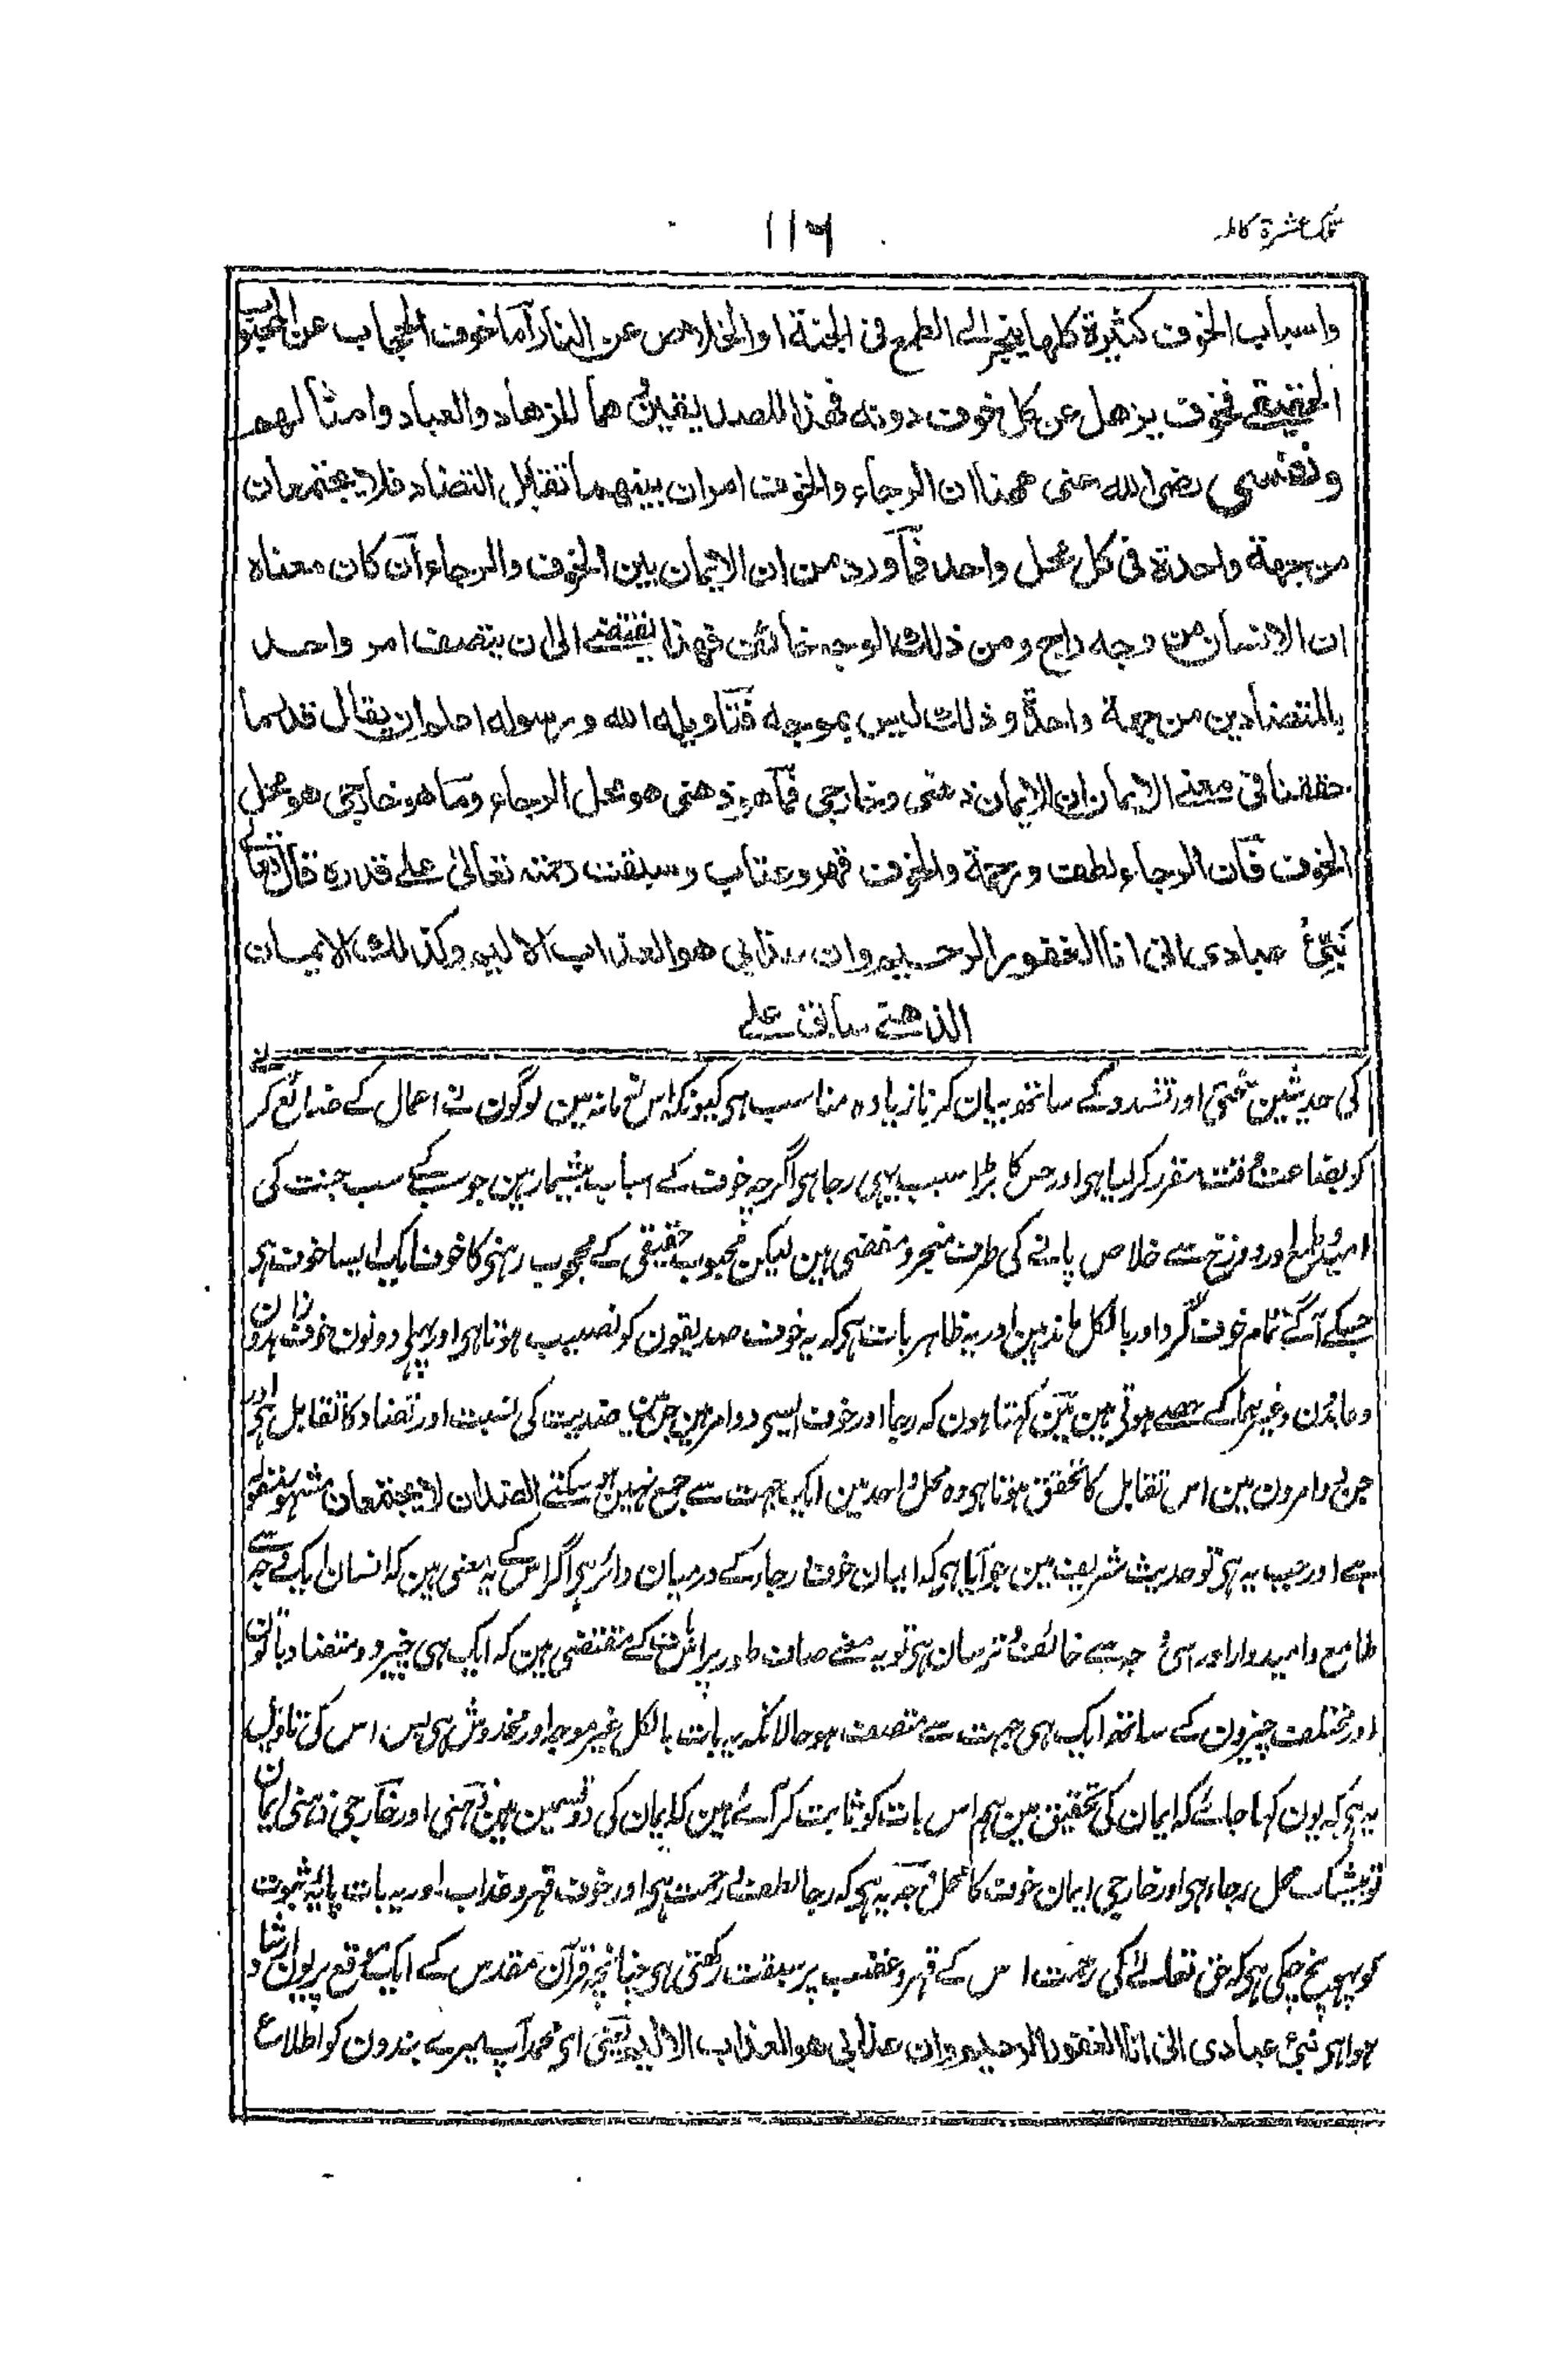 تلک عشرة کاملہ
۱۱۶
واسباب الخوف كثيرة كلها ينجر الى الطمع فى الجنة او الخلاص عن النار اما خوف الحجاب عن المحبوب
الحقيقے فخوف يذهل عن كل خوف دونه فهذا للصديقين وهما للزهاد والعباد وامثالهم
ونفسی رضی الله عنی ههنا ان الرجاء والخوف امران بينهما تقابل التضاد فلا يجتمعان
من جهة واحدة فى كل محل واحد فما ورد من ان الايمان بين الخوف والرجاء ان كان معناه
ان الانسان من وجه راج ومن ذلك الوجه خائف فهذا يقتضے الى ان يتصف امر واحد
بالمتضادين من جهة واحدة وذلك ليس بموجه فتاويله الله ورسوله اعلم ان يقال قد مما
حققنا فى معنے الايمان ان الايمان ذهنی وخارجی فما هو ذهنی هو محل الرجاء وما هو خارجی هو محل
الخوف فان الرجاء لطف ورحمة والخوف قهر وعتاب وسبقت رحمته تعالىٰ علے قدره قال تعالے
نَبِّئْ عبادى انى انا الغفور الرحيم وان عذابى هو العذاب الاليم وكذلك الايمان
الذهنے سابق علے
کی حدیثین سختی اور تشدد کے ساتھ بیان کرنا زیادہ مناسب ہی کیونکہ اس زمانہ مین لوگون نے اعمال کے ضائع کرنے
کو بضاعت مقرر کر لیا ہی اور جس کا بڑا سبب یہی رجا ہی اگرچہ خوف کے اسباب بیشمار ہین جو سب کے سب جنت کی
امید طمع اور دوزخ سے خلاص پانے کی طرف منجر و مفضی ہین لیکن محبوب حقیقی کے محجوب رہنی کا خوف ایک ایسا خوف ہی
جسکے آگے تمام خوف گرد اور بالکل ماند ہین اور یہ ظاہر بات ہی کہ یہ خوف صدیقون کو نصیب ہوتا ہی اور پہلے دونون خوف زاہدون
و عابدون وغیرہما کے حصے ہوتی ہین مین کہتا ہون کہ رجا اور خوف ایسی دو امر ہین جن مین ضدیت کی نسبت اور تضاد کا تقابل ہی اور
جن دو امرون مین اس تقابل کا تحقق ہوتا ہی وہ محل واحد مین ایک جہت سے جمع نہین ہو سکتے الضدان لا یجتمعان مشہور مقولہ
ہے اور جب یہ ہی تو حدیث شریف مین جو آیا ہی کہ ایمان خوف و رجاء کے درمیان دائر ہی اگر اس کے یہ معنی ہین کہ انسان ایک وجہ سے
طامع و امیدوار اور اسی وجہ سے خائف و ترسان ہی تو یہ معنے صاف طور پر اس بات کے مقتضی ہین کہ ایک ہی چیز دو متضاد باتون
اور مختلف چیزون کے ساتھ ایک ہی جہت سے متصف ہو حالانکہ یہ بات بالکل غیر موجہ اور مخدوش ہی پس اس کی تاویل
یہ ہی کہ یون کہا جائے کہ ایمان کی تحقیق مین ہم اس بات کو ثابت کر آئے ہین کہ ایمان کی دو قسمین ہین ذہنی اور خارجی ذہنی ایمان
تو بیشک محل رجاء ہی اور خارجی ایمان خوف کا محل وجہ یہ ہی کہ رجا لطف و رحمت ہی اور خوف قہر و عذاب اور یہ بات پایہ ثبوت
کو پہونچ چکی ہی کہ حق تعالے کی رحمت اس کے قہر و غضب پر سبقت رکھتی ہی چنانچہ قرآن مقدس کے ایک موقع پر یون ارشاد
ہوا ہی نبئ عبادی انی انا الغفور الرحیم وان عذابی هو العذاب الالیم یعنی ای محمد آپ میرے بندون کو اطلاع